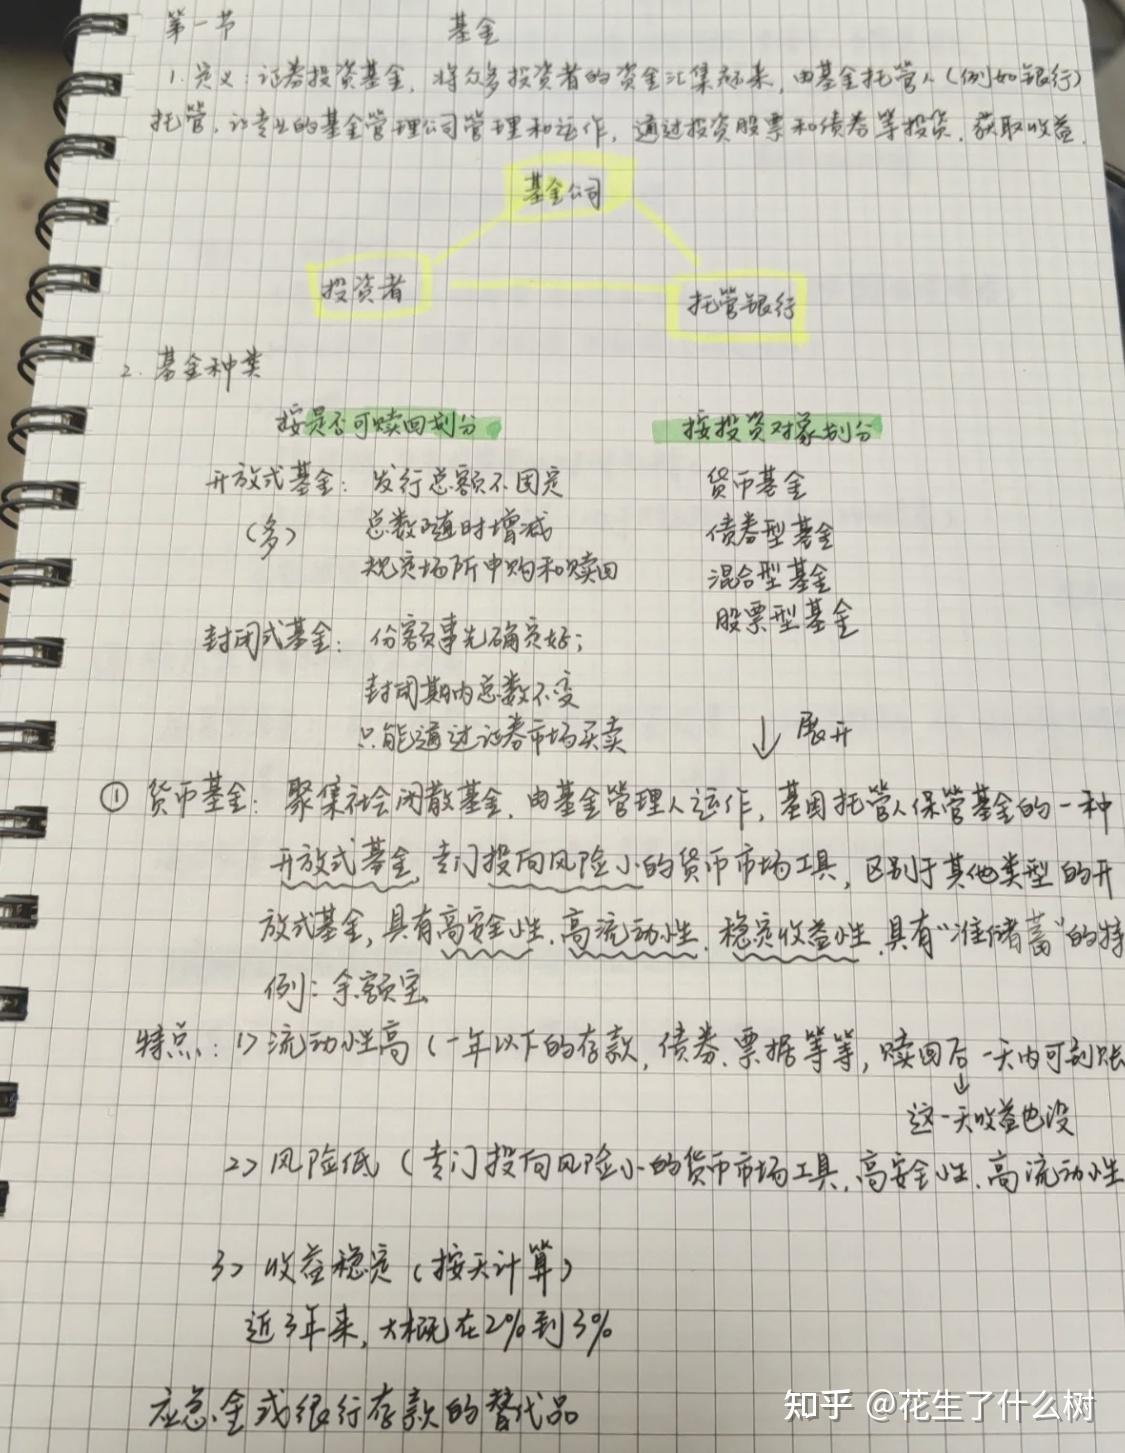 第一节 基金
1. 定义：证券投资基金，将众多投资者的资金汇集起来，由基金托管人（例如银行）
托管，让专业的基金管理公司管理和运作，通过投资股票和债券等投资，获取收益.
基金公司
投资者
托管银行
2. 基金种类
按是否可赎回划分 按投资对象划分
开放式基金：发行总额不固定 货币基金
（多） 总数随时增减 债券型基金
规定场所申购和赎回 混合型基金
股票型基金
封闭式基金：份额事先确定好；
封闭期内总数不变
只能通过证券市场买卖
↓ 展开
① 货币基金：聚集社会闲散基金，由基金管理人运作，基因托管人保管基金的一种
开放式基金，专门投向风险小的货币市场工具，区别于其他类型的开
放式基金，具有高安全性、高流动性、稳定收益性，具有“准储蓄”的特
例：余额宝
特点：1> 流动性高（一年以下的存款，债券、票据等等，赎回后一天内可到账
↓
这一天收益也没
2> 风险低（专门投向风险小的货币市场工具，高安全性、高流动性
3> 收益稳定（按天计算）
近3年来，大概在2%到3%
应急金或银行存款的替代品
知乎 @花生了什么树